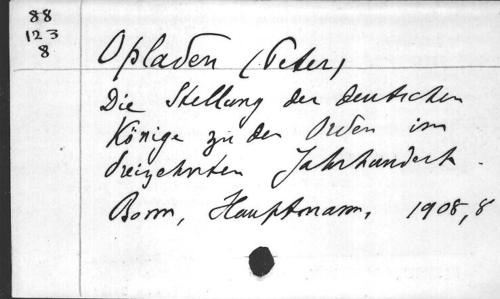 88
123
8
Opladen (Peter)
Die Stellung der deutschen
Könige zu den Orden im
dreizehnten Jahrhundert.
Bonn, Hauptmann, 1908, 8